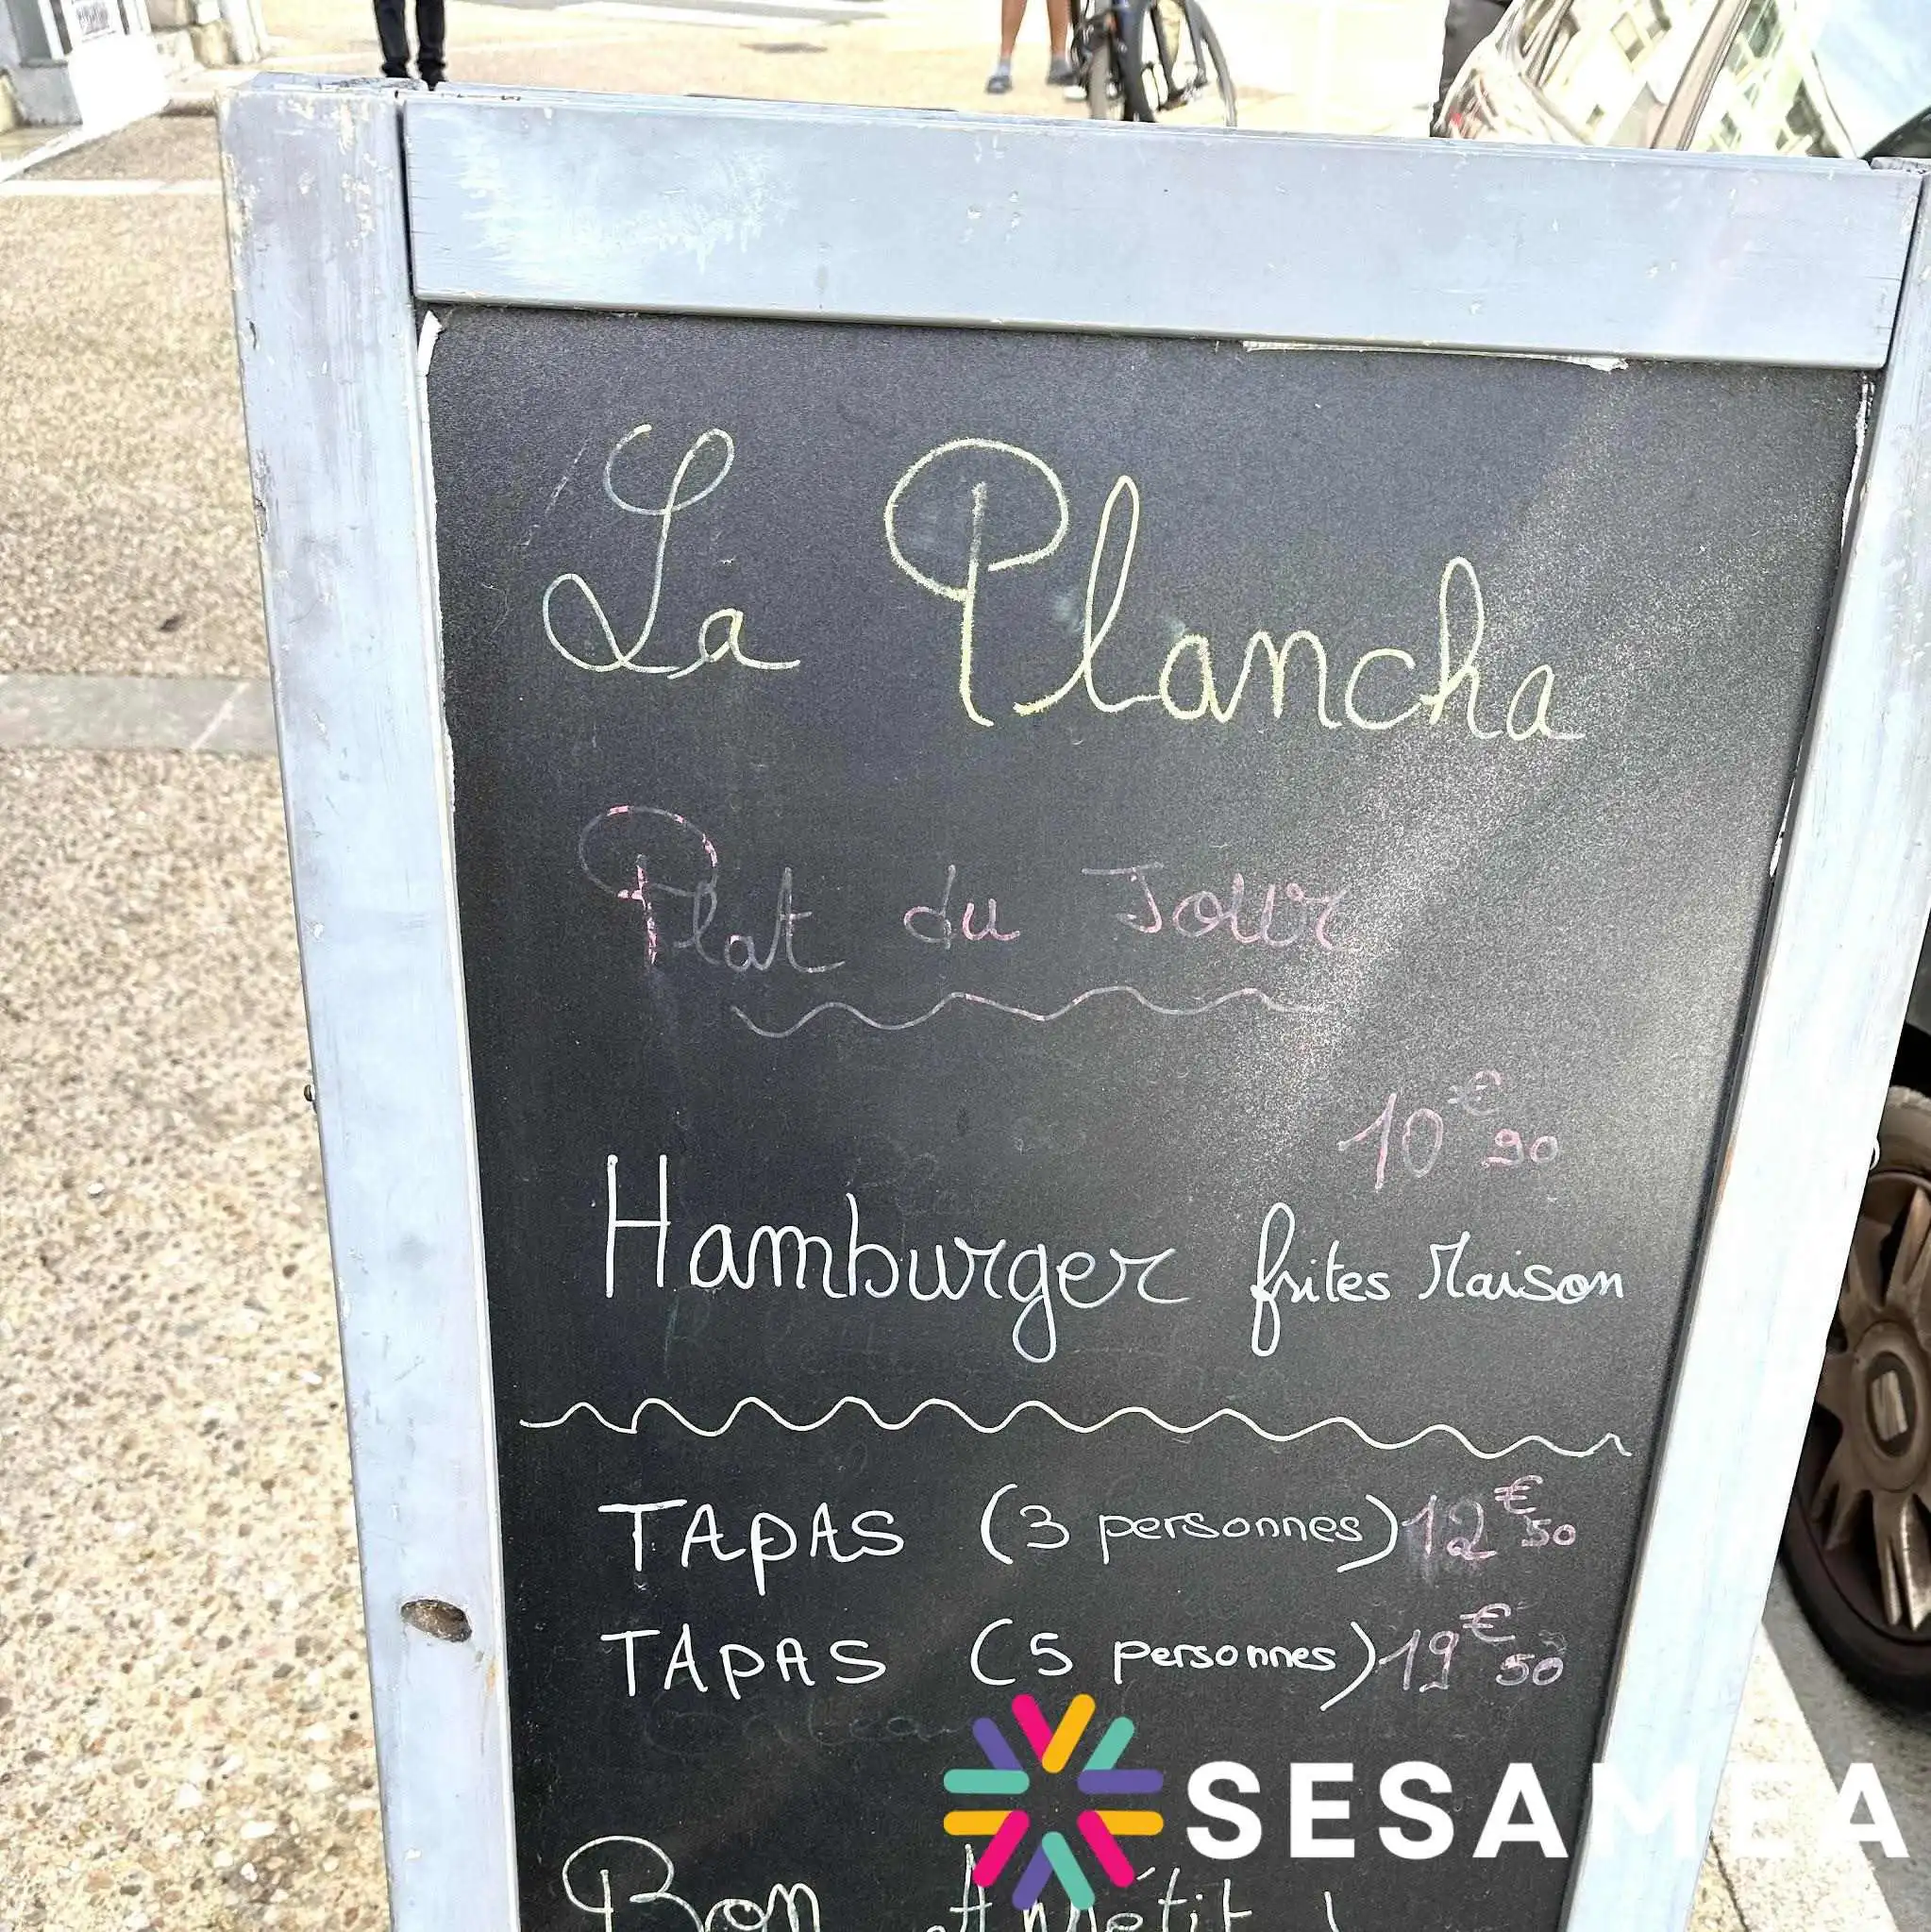 La Plancha
Plat du Jour
10€90
Hamburger frites Maison
TAPAS (3 personnes) 12€50
TAPAS (5 personnes) 19€50
SESAMEA
Bon Appétit !